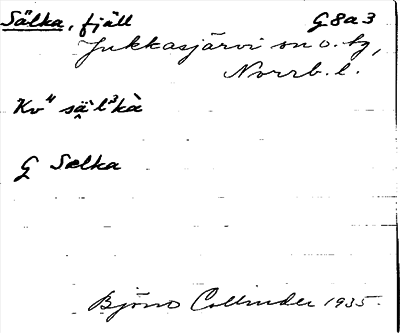 Sälka, fjäll G8a3
Jukkasjärvi sn o. tg,
Norrb. l.
Kv⁴ sä̭l³kà
G Sælka
Björn Collinder 1935.